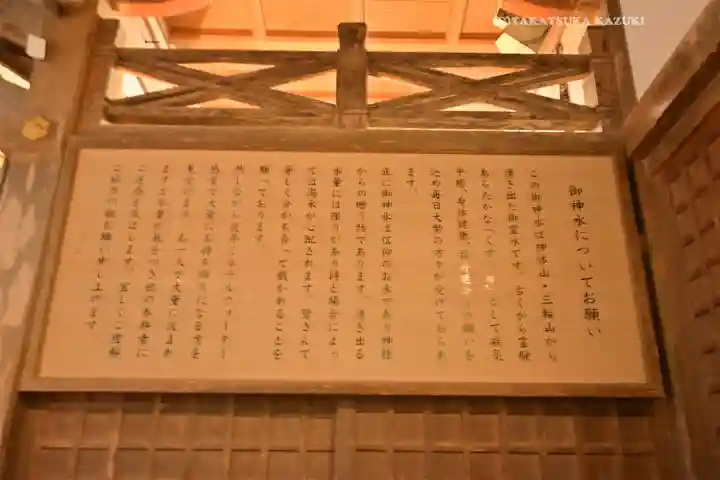 ©TAKATSUKA KAZUKI
御神水についてお願い
この御神水は御神体山・三輪山から
湧き出た御霊水です。古くから霊験
あらたかな「くす として病気
平癒、身体健康、 の願いを
込め毎日大勢の方々が受けておられ
ます。
正に御神水は信仰のお水であり神様
からの贈り物であります。湧き出る
水量には限りがあり時と場合によっ
ては渇水が心配されます。皆さんで
等しく分かち合って戴かれることを
願っております。
然しながら近年、ミネラルウォーター
感覚で大量にお持ち帰りになる方を
見受けます。お一人で大量に汲まれ
ますと水量が底をつき他の参拝者に
ご迷惑を及ぼします。宜しくご理解
ご協力の程お願い申し上げます